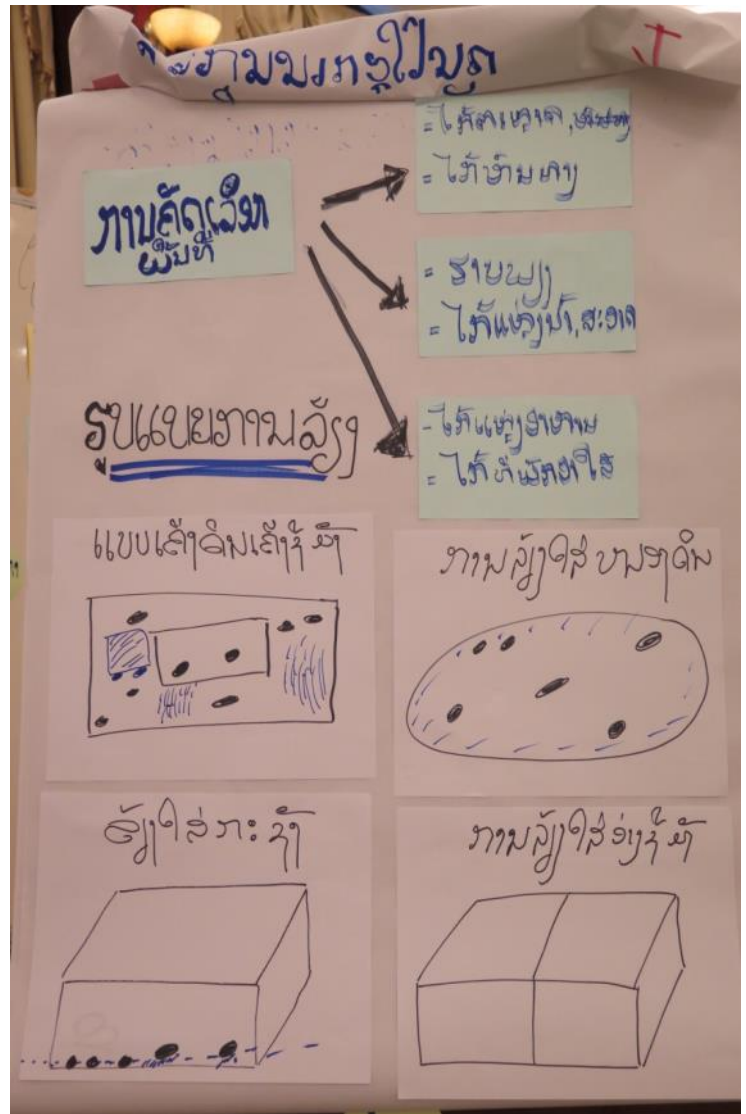 ການຄັດເລືອກ
ພື້ນທີ່
= ໃກ້ຕະຫຼາດ,
= ໃກ້ທາງ
= ຮາບພຽງ
= ໃກ້ແຫຼ່ງນ້ຳ, ສະອາດ
- ໃກ້ແຫຼ່ງອາຫານ
= ໃກ້ທີ່ພັກອາໄສ
ຮູບແບບການລ້ຽງ
ແບບເຄິ່ງດິນເຄິ່ງນ້ຳ
ການລ້ຽງໃສ່ຫນອງດິນ
ລ້ຽງໃສ່ກະຊັງ
ການລ້ຽງໃສ່ອ່າງຊີມັງ